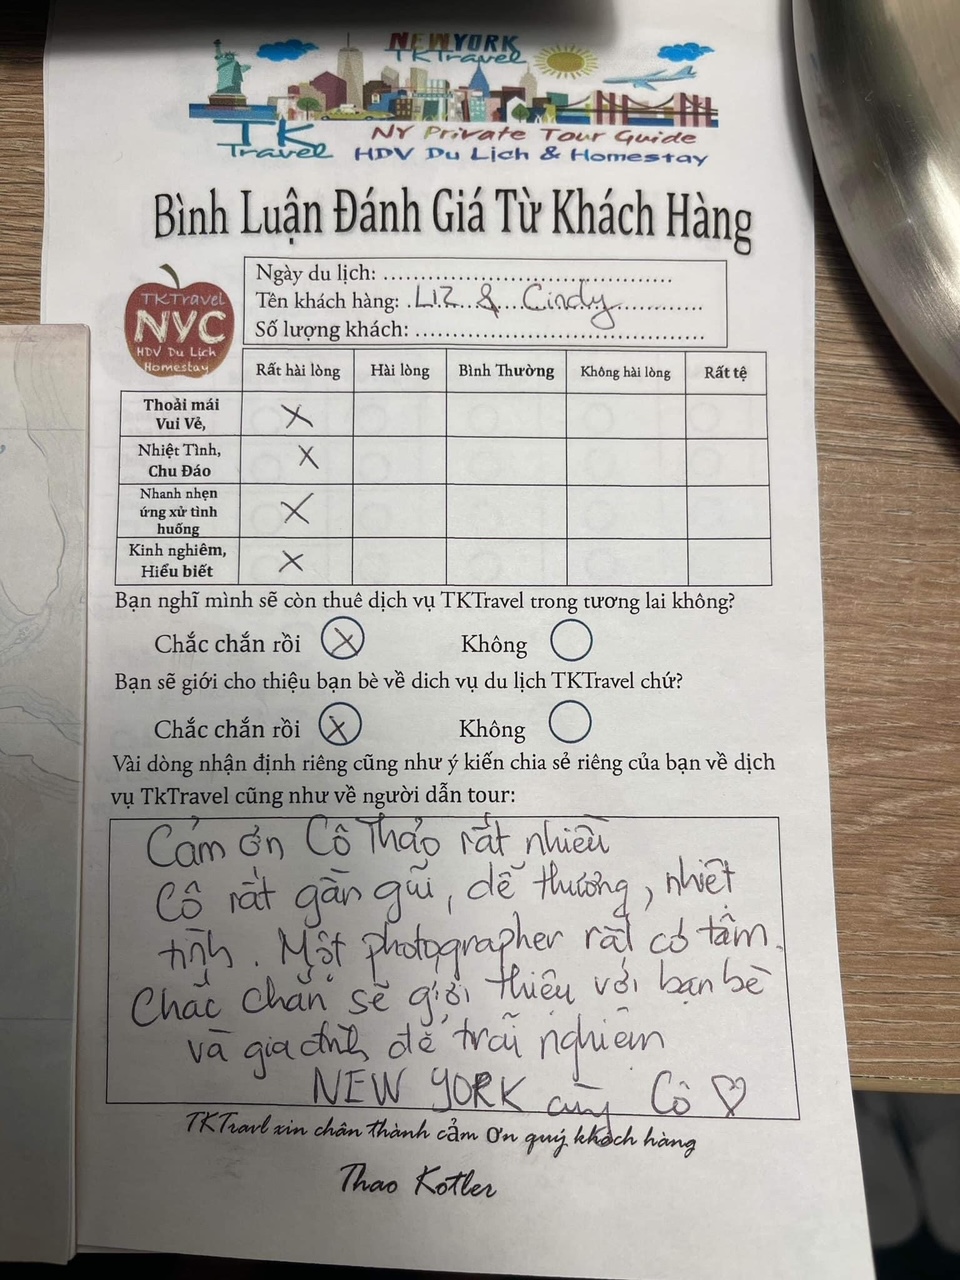 NEW YORK
TKTravel
TK
Travel
NY Private Tour Guide
HDV Du Lịch & Homestay
Bình Luận Đánh Giá Từ Khách Hàng
TKTravel
NYC
HDV Du Lịch
Homestay
Ngày du lịch: ..........................................
Tên khách hàng: Liz & Cindy
Số lượng khách: ..........................................
Rất hài lòng Hài lòng Bình Thường Không hài lòng Rất tệ
Thoải mái
Vui Vẻ, X
Nhiệt Tình,
Chu Đáo X
Nhanh nhẹn
ứng xử tình
huống X
Kinh nghiêm,
Hiểu biết X
Bạn nghĩ mình sẽ còn thuê dịch vụ TKTravel trong tương lai không?
Chắc chắn rồi X Không
Bạn sẽ giới cho thiệu bạn bè về dich vụ du lịch TKTravel chứ?
Chắc chắn rồi X Không
Vài dòng nhận định riêng cũng như ý kiến chia sẻ riêng của bạn về dịch
vụ TkTravel cũng như về người dẫn tour:
Cảm ơn Cô Thảo rất nhiều
Cô rất gần gũi, dễ thương, nhiệt
tình. Một photographer rất có tâm.
Chắc chắn sẽ giới thiệu với bạn bè
và gia đình để trãi nghiệm
NEW YORK cùng Cô ♡
TKTravl xin chân thành cảm Ơn quý khách hàng
Thao Kotler